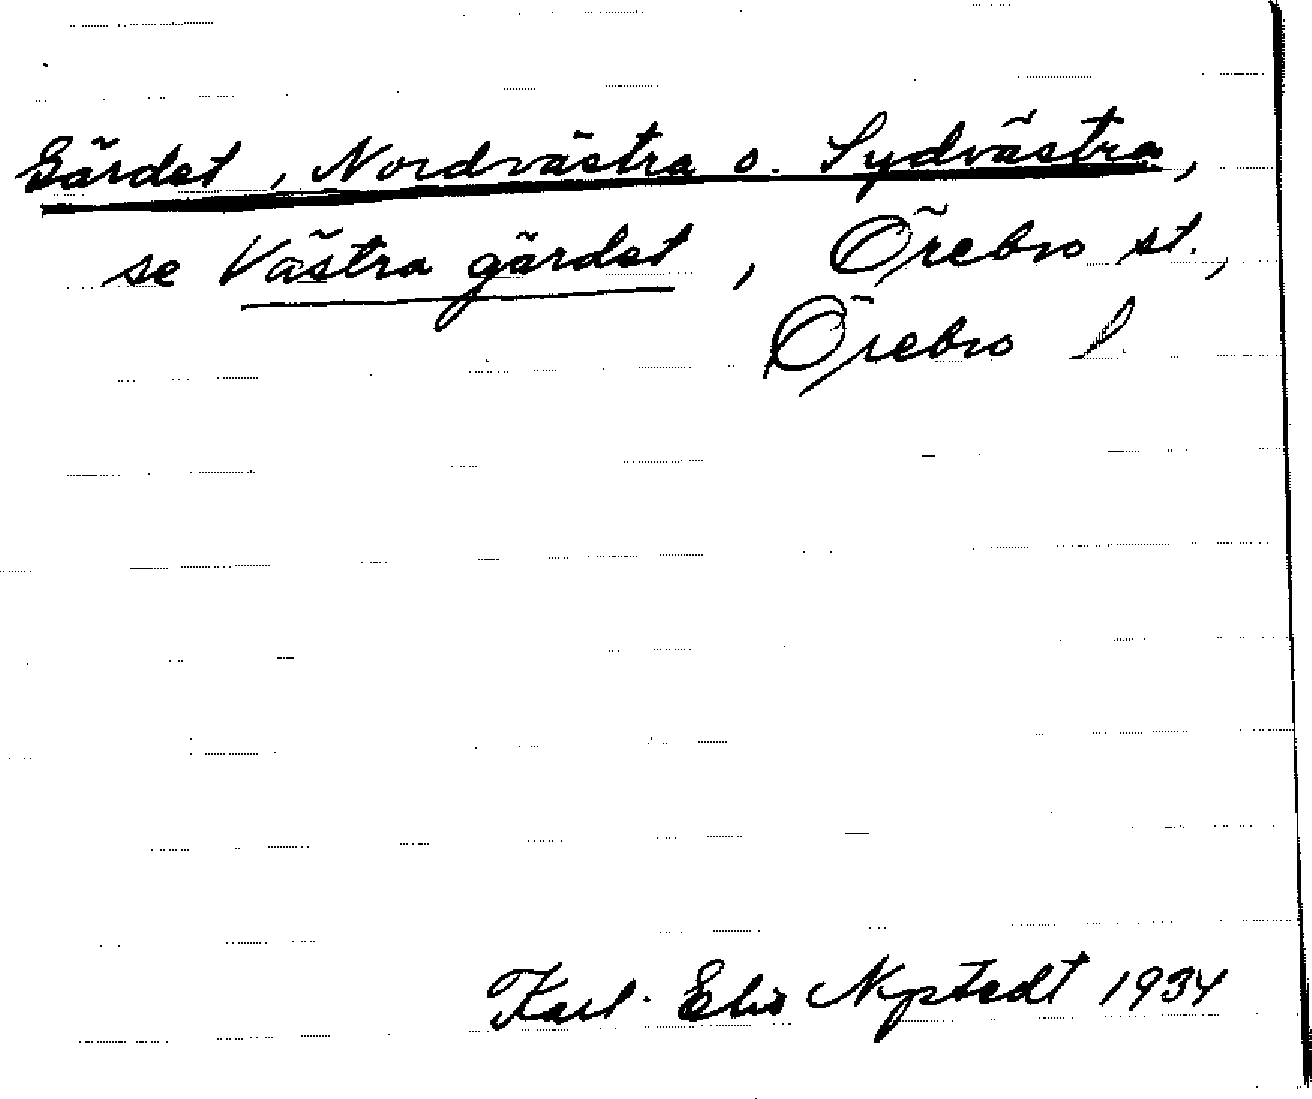 Gärdet, Nordvästra o. Sydvästra,
se Västra gärdet, Örebro st.,
Örebro l
Karl-Elis Nystedt 1934